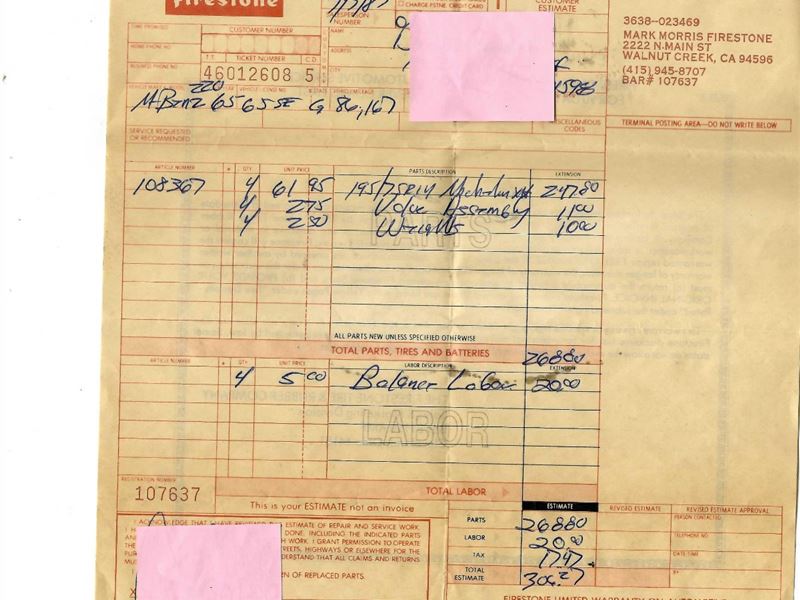 Firestone
CHARGE-ESTNE. CREDIT CARD
CUSTOMER
ESTIMATE
SALESPERSON
NUMBER
NAME
ADDRESS
TIME PROMISED
CUSTOMER NUMBER
HOME PHONE NO.
T.T.
TICKET NUMBER
C.D.
BUSINESS PHONE NO.
46012608 5
3638-023469
MARK MORRIS FIRESTONE
2222 N·MAIN ST
WALNUT CREEK, CA 94596
(415) 945-8707
BAR# 107637
220
M Benz 65 65 SE G 86,167
MISCELLANEOUS
CODES
TERMINAL POSTING AREA—DO NOT WRITE BELOW
SERVICE REQUESTED
OR RECOMMENDED
ARTICLE NUMBER QTY UNIT PRICE PARTS DESCRIPTION EXTENSION
108367 4 61 95 195/75R14 Michelin 247 80
4 2 75 Valve Assembly 11 00
4 2 50 Weights 10 00
PARTS
ALL PARTS NEW UNLESS SPECIFIED OTHERWISE
TOTAL PARTS, TIRES AND BATTERIES 268 80
ARTICLE NUMBER QTY UNIT PRICE LABOR DESCRIPTION EXTENSION
4 5 00 Balance Labor 20 00
LABOR
REGISTRATION NUMBER
107637
TOTAL LABOR
This is your ESTIMATE not an invoice
ESTIMATE REVISED ESTIMATE REVISED ESTIMATE APPROVAL
PARTS 268 80
LABOR 20 00
TAX 17 47
TOTAL
ESTIMATE 306 27
PERSON CONTACTED
TELEPHONE NO.
DATE/TIME
I ACKNOWLEDGE THAT I HAVE
ESTIMATE OF REPAIR AND SERVICE WORK
DONE, INCLUDING THE INDICATED PARTS
WORK. I GRANT PERMISSION TO OPERATE
STREETS, HIGHWAYS OR ELSEWHERE FOR THE
UNDERSTAND THAT ALL CLAIMS AND RETURNS
OF REPLACED PARTS.
X
FIRESTONE LIMITED WARRANTY ON AUTOMOTIVE